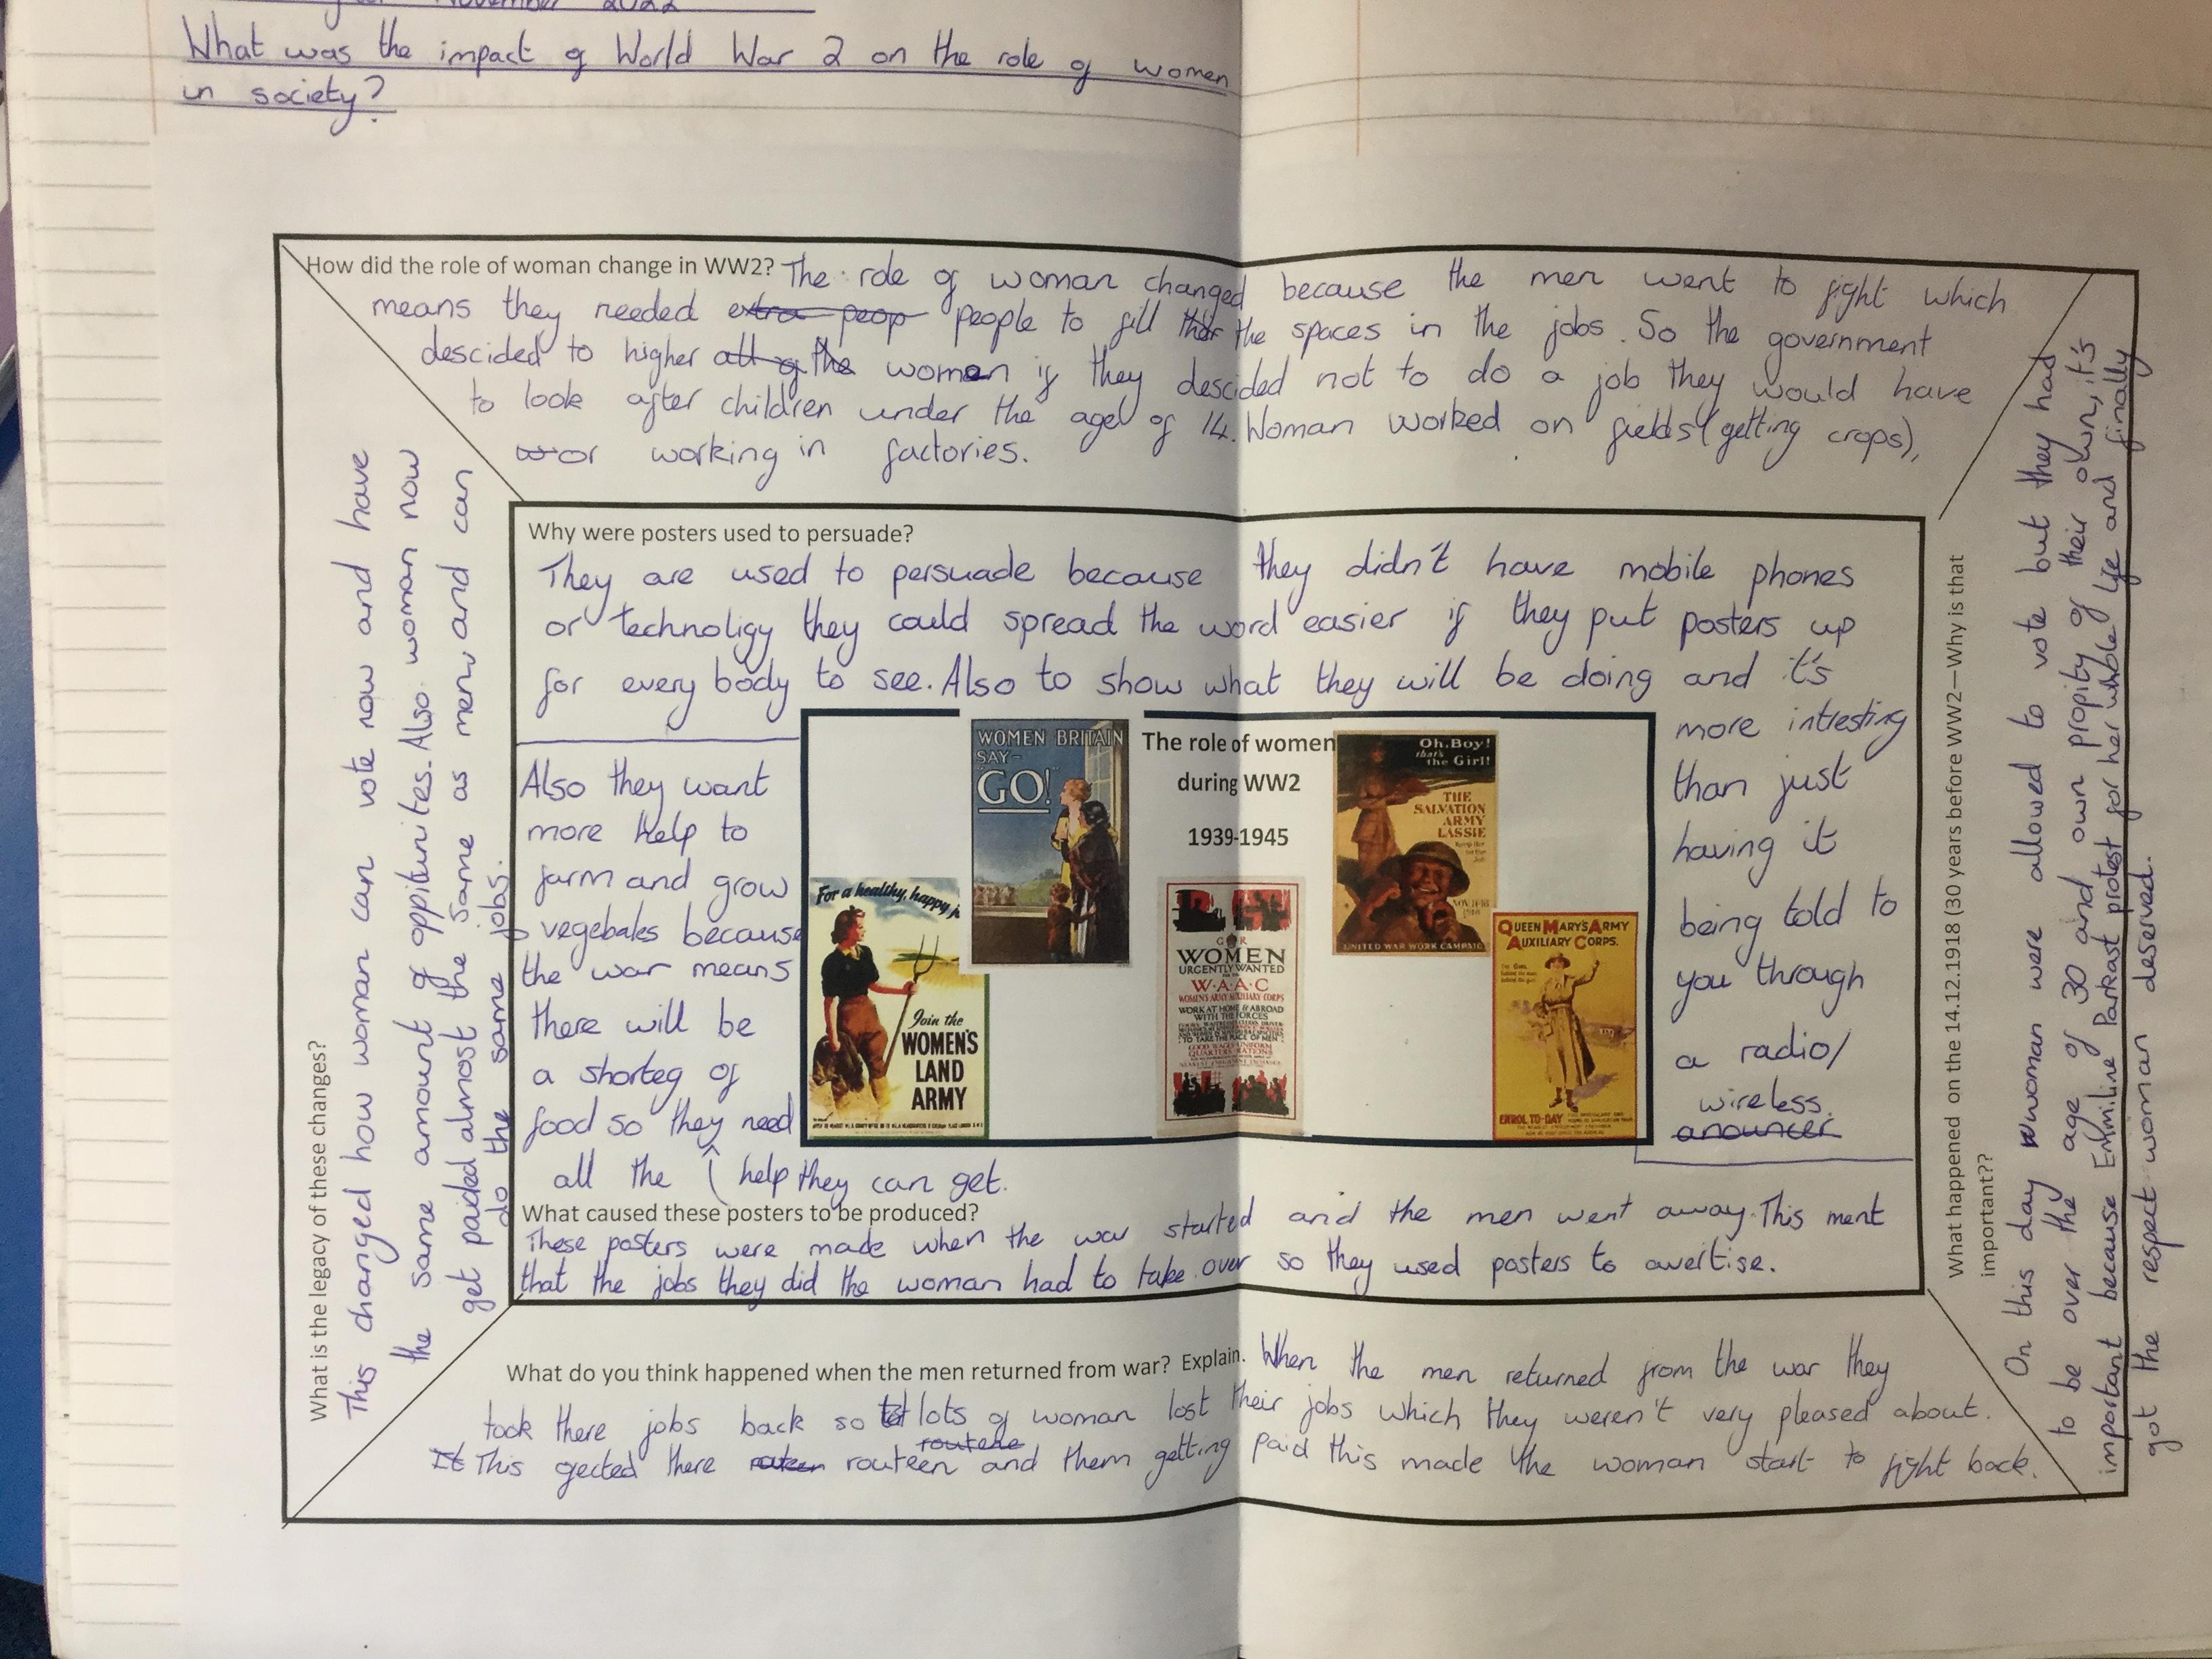 November 2022
What was the impact of World War 2 on the role of women
in society?
How did the role of woman change in WW2? The role of woman changed because the men went to fight which
means they needed extra peop people to fill the spaces in the jobs. So the government
descided to higher all of the women if they descided not to do a job they would have
to look after children under the age of 14. Woman worked on fields (getting crops),
wor working in factories.
Why were posters used to persuade?
They are used to persuade because they didn't have mobile phones
or technoligy they could spread the word easier if they put posters up
for every body to see. Also to show what they will be doing and it's
more intresting
than just
having it
being told to
you through
a radio/
wireless.
anouncer
Also they want
more help to
farm and grow
vegebales because
the war means
there will be
a shorteg of
food so they need
all the help they can get.
The role of women
during WW2
1939-1945
WOMEN BRITAIN
SAY-
"GO!"
Oh, Boy!
that's
the Girl!
THE
SALVATION
ARMY
LASSIE
Keep Her
on the
Job
NOV. 11-18
1918
UNITED WAR WORK CAMPAIGN
For a healthy, happy j
Join the
WOMEN'S
LAND
ARMY
G R
WOMEN
URGENTLY WANTED
FOR THE
W·A·A·C
WOMEN'S ARMY AUXILIARY CORPS
WORK AT HOME & ABROAD
WITH THE FORCES
TO TAKE THE PLACE OF MEN
GOOD WAGES UNIFORM
QUARTERS RATIONS
QUEEN MARY'S ARMY
AUXILIARY CORPS.
THE GIRL
behind the man
behind the gun
ENROL TO-DAY
What caused these posters to be produced?
These posters were made when the war started and the men went away. This ment
that the jobs they did the woman had to take over so they used posters to avertise.
What do you think happened when the men returned from war? Explain. When the men returned from the war they
took there jobs back so lots of woman lost their jobs which they weren't very pleased about.
routene
It This efected there routeen and them getting paid this made the woman start to fight back.
What is the legacy of these changes?
This changed how woman can vote now and have
the same amount of oppitunites. Also woman now
get paided almost the same as men and can
do the same jobs.
What happened on the 14.12.1918 (30 years before WW2—Why is that
important??
On this day woman were allowed to vote but they had
to be over the age of 30 and own propity of their own, it's
important because Emmiline Parkast protest for her whole life and finally
got the respect woman deserved.